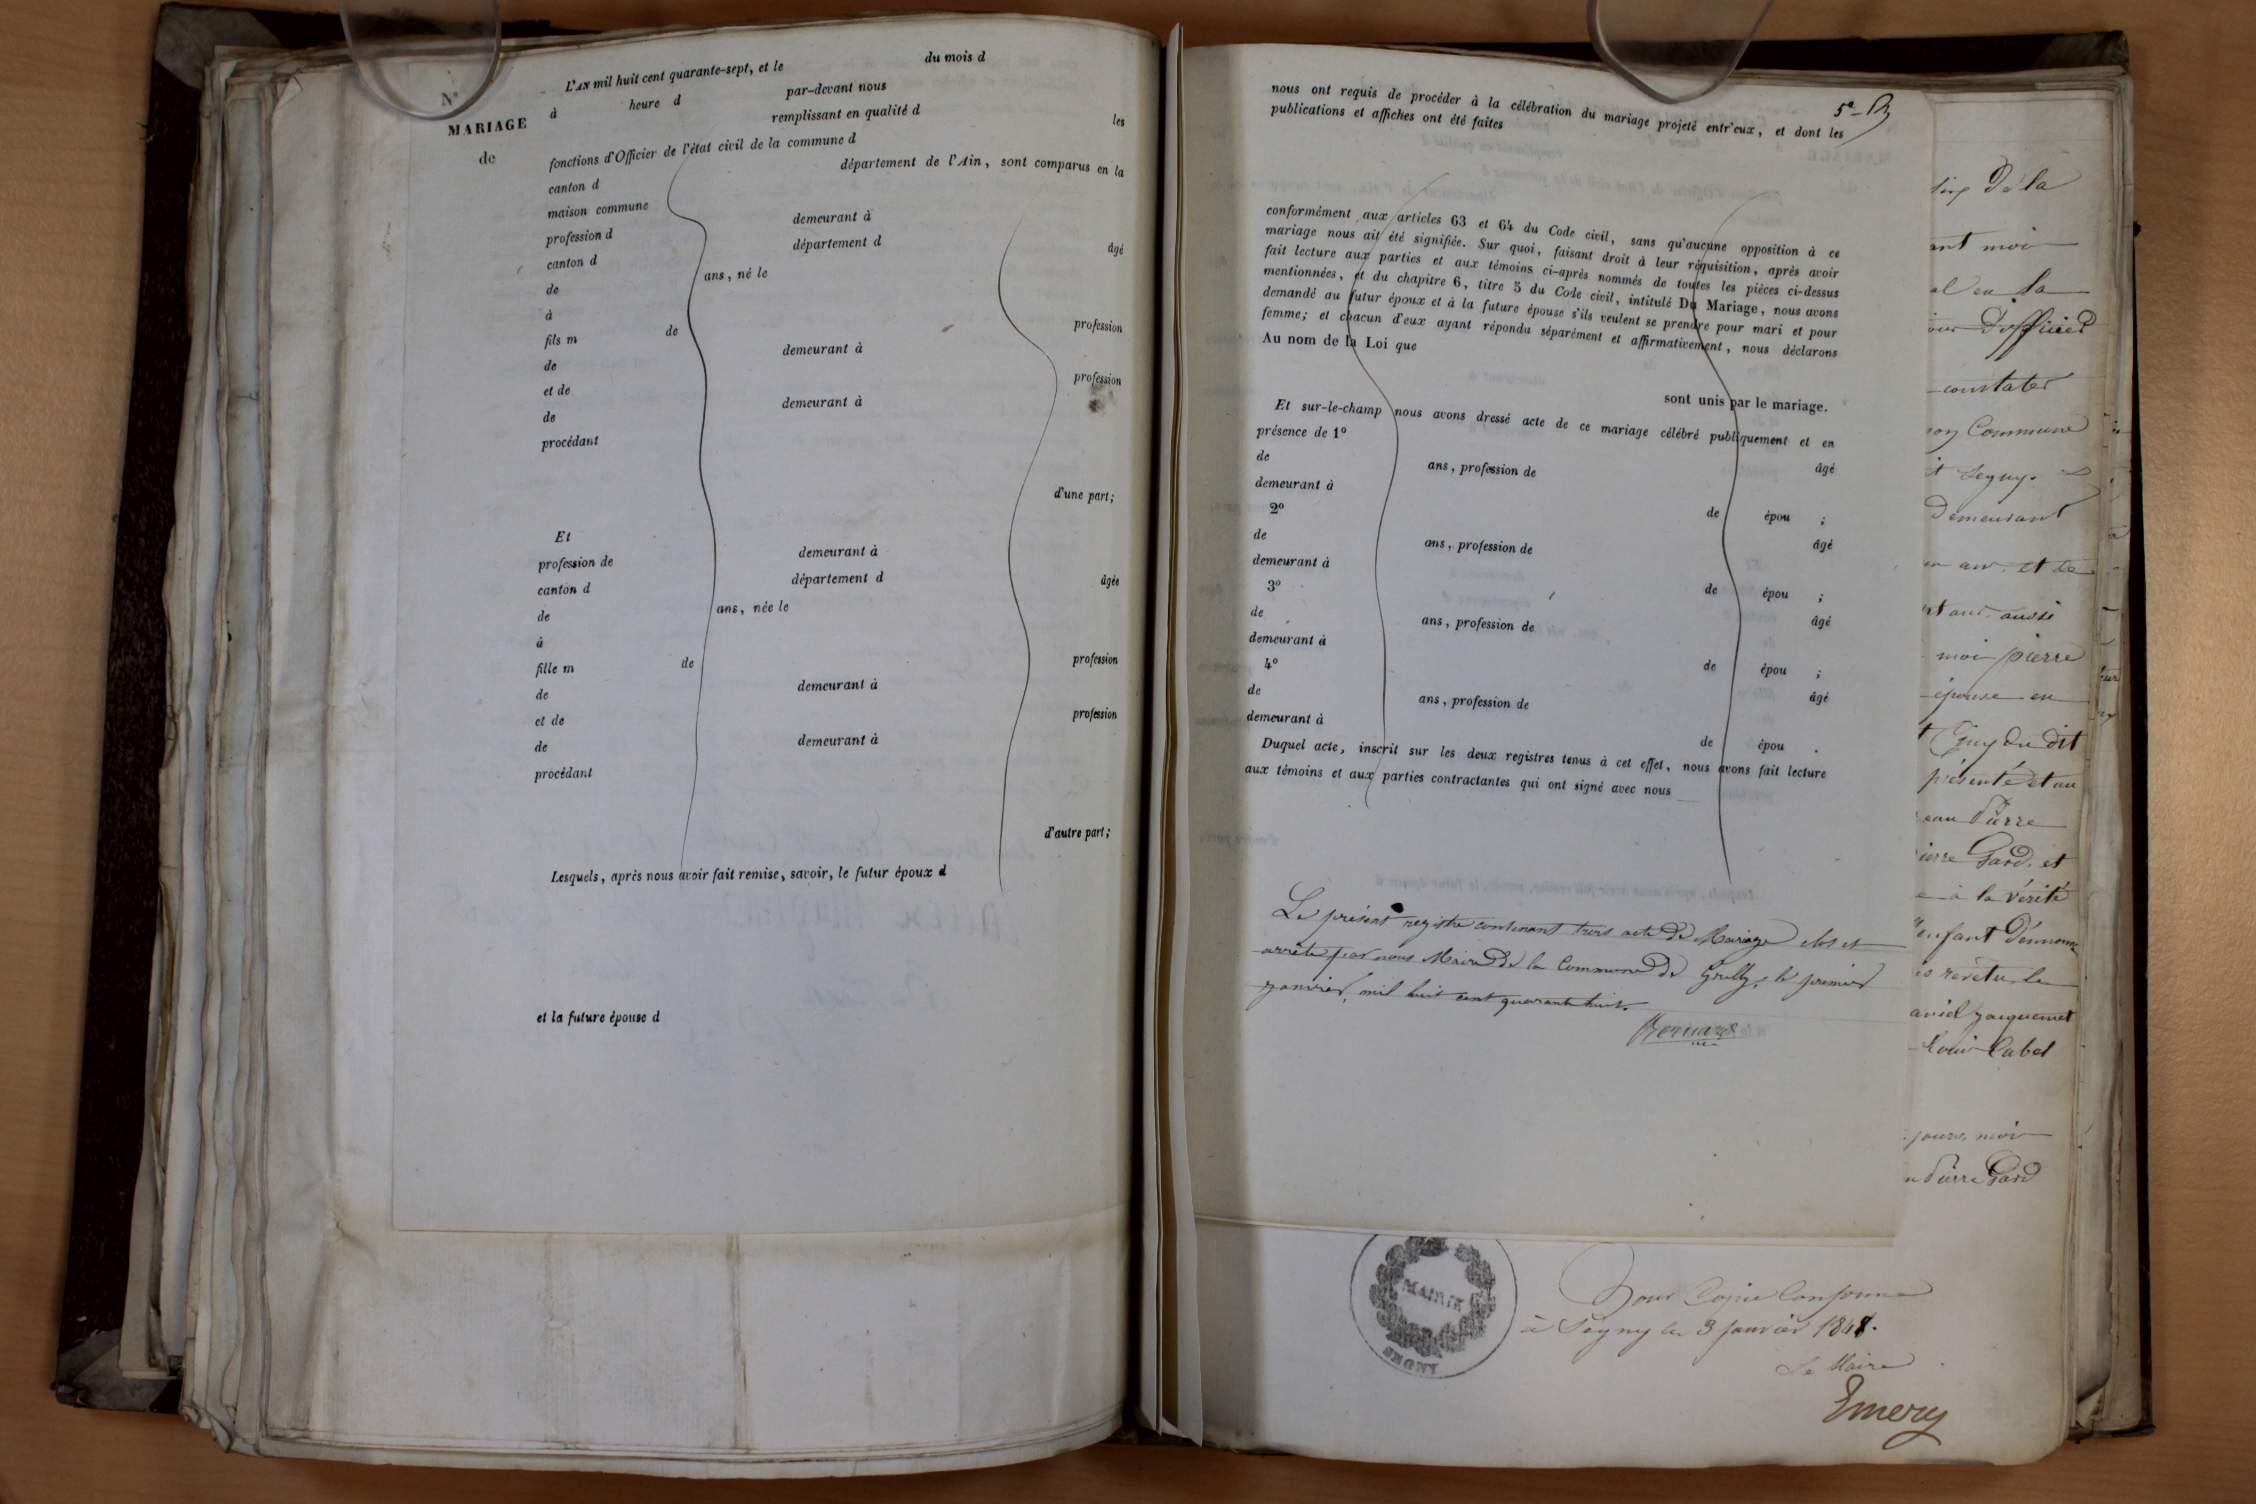 N°
MARIAGE
de
L'AN mil huit cent quarante-sept, et le du mois d
à heure d par-devant nous
remplissant en qualité d les
fonctions d'Officier de l'état civil de la commune d
canton d département de l'Ain, sont comparus en la
maison commune
profession d demeurant à
canton d département d âgé
de ans, né le
à
fils m de profession
de demeurant à
et de profession
de demeurant à
procédant
d'une part;
Et
profession de demeurant à
canton d département d âgée
de ans, née le
à
fille m de profession
de demeurant à
et de profession
de demeurant à
procédant
d'autre part;
Lesquels, après nous avoir fait remise, savoir, le futur époux d
et la future épouse d
5e
nous ont requis de procéder à la célébration du mariage projeté entr'eux, et dont les
publications et affiches ont été faites
conformément aux articles 63 et 64 du Code civil, sans qu'aucune opposition à ce
mariage nous ait été signifiée. Sur quoi, faisant droit à leur réquisition, après avoir
fait lecture aux parties et aux témoins ci-après nommés de toutes les pièces ci-dessus
mentionnées, et du chapitre 6, titre 5 du Code civil, intitulé Du Mariage, nous avons
demandé au futur époux et à la future épouse s'ils veulent se prendre pour mari et pour
femme; et chacun d'eux ayant répondu séparément et affirmativement, nous déclarons
Au nom de la Loi que
sont unis par le mariage.
Et sur-le-champ nous avons dressé acte de ce mariage célébré publiquement et en
présence de 1°
de ans, profession de âgé
demeurant à
2° de épou ;
de ans, profession de âgé
demeurant à
3° de épou ;
de ans, profession de âgé
demeurant à
4° de épou ;
de ans, profession de âgé
demeurant à
de épou .
Duquel acte, inscrit sur les deux registres tenus à cet effet, nous avons fait lecture
aux témoins et aux parties contractantes qui ont signé avec nous
Le présent registre contenant trois acte de Mariage clos et
arrêté par nous Maire de la Commune de Grilly, le premier
janvier, mil huit cent quarante huit.
de la
ant moi
la
d'officier
constater
Commune
Segny.
demeurant
et de
aussi
moi pierre
épouse en
du dit
présenté et au
Pierre
Gard. et
à la vérité
enfant
revêtu le
Jacquemet
Louis Cabet
jours, moi
Pierre Gard
MAIRIE
Pour Copie Conforme
à Segny le 3 janvier 1848.
Le Maire
Emery